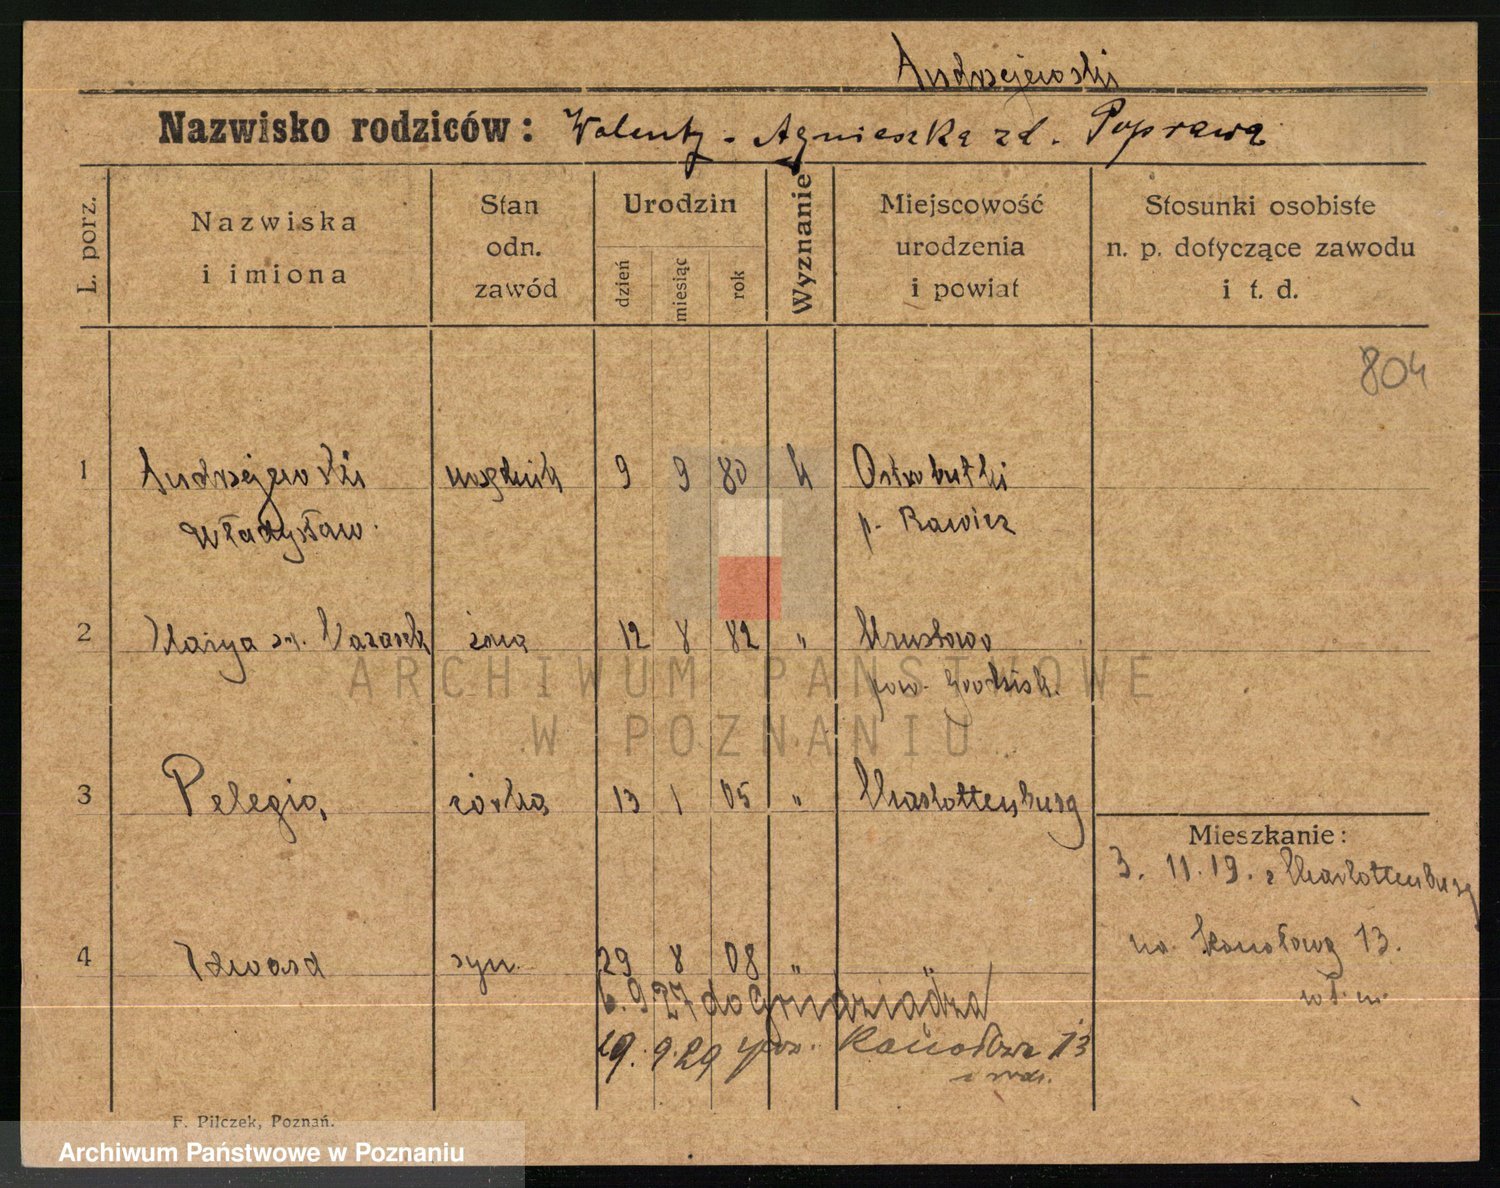 Andrzejewski
Nazwisko rodziców: Walenty - Agnieszka zd. Poprawa
L. porz.
Nazwiska
i imiona
Stan
odn.
zawód
Urodzin
dzień
miesiąc
rok
Wyznanie
Miejscowość
urodzenia
i powiat
Stosunki osobiste
n. p. dotyczące zawodu
i t. d.
804
1 Andrzejewski urzędnik 9 9 80 k Ostrobudki
Władysław p. Rawicz
2 Marya żona 12 8 82 "
pow. Grodzisk.
3 Pelagia, córka 13 1 05 " Charlottenburg
Mieszkanie:
3. 11. 19. z Charlottenburg
na 13.
4 Edward syn 29 8 08 " "
6. 9 27 do Grudziądza
29. 9. 29 13
F. Pilczek, Poznań.
ARCHIWUM PAŃSTWOWE
W POZNANIU
Archiwum Państwowe w Poznaniu